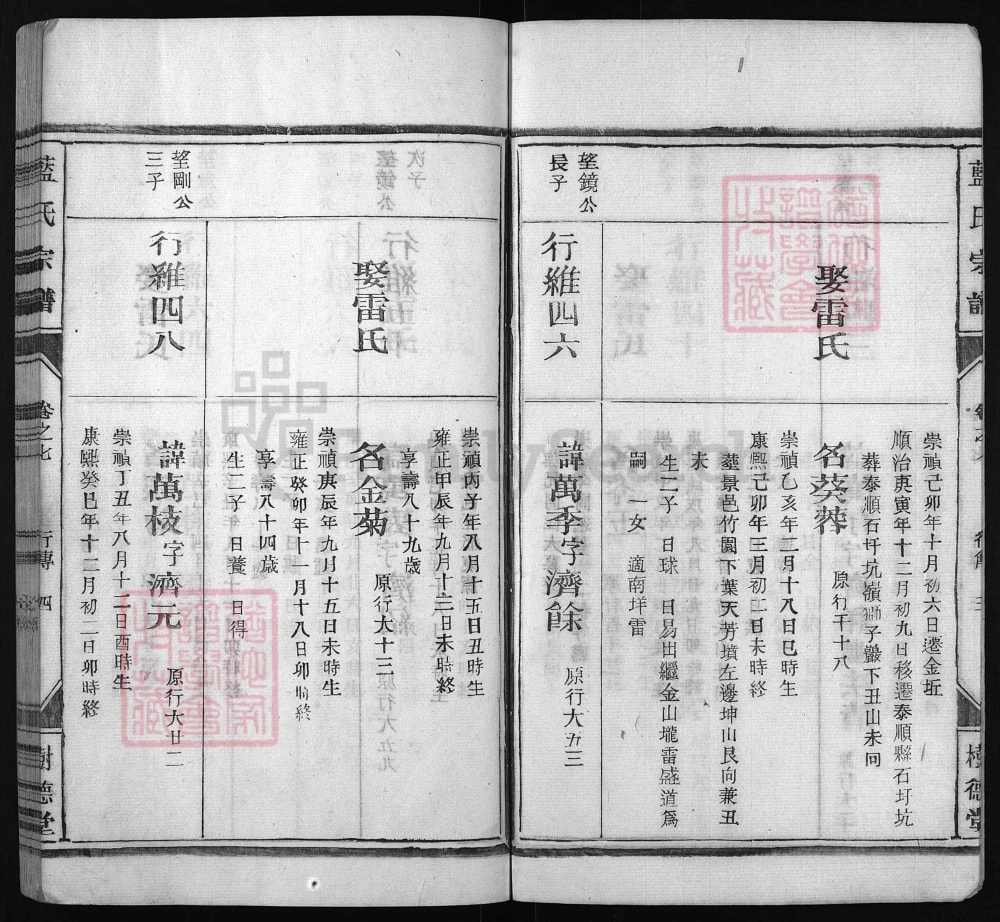 藍氏宗譜
卷之七
行傳
三
樹德堂
崇禎己卯年十月初六日遷金坵
順治庚寅年十二月初九日移遷泰順縣石圩坑
葬泰順石圩坑嶺獅子巖下丑山未向
娶雷氏
名葵蓉
原行千十八
崇禎乙亥年二月十八日巳時生
康熙己卯年三月初二日未時終
塟景邑竹園下葉天芳墳左邊坤山艮向兼丑
未
生二子 日球 日易出繼金山壠雷盛道為
嗣 一女 適南垟雷
望鏡公
長子
行維四六
諱萬季字濟餘
原行大五三
崇禎丙子年八月十五日丑時生
雍正甲辰年九月十二日未時終
享壽八十九歲
娶雷氏
名金菊
原行大十三
崇禎庚辰年九月十五日未時生
雍正癸卯年十一月十八日卯時終
享壽八十四歲
生二子 日養 日得
望剛公
三子
行維四八
諱萬枝字濟元
原行大廿二
崇禎丁丑年八月十二日酉時生
康熙癸巳年十二月初二日卯時終
藍氏宗譜
卷之七
行傳
四
樹德堂
FamilySearch